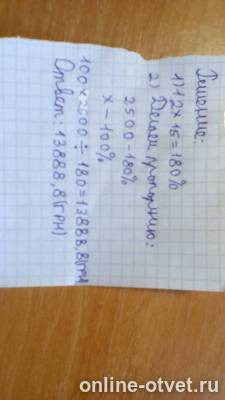 Решение:
1) 12 × 15 = 180%
2) Делаем пропорцию:
2500 - 180%
x - 100%
100 × 2500 ÷ 180 = 13888,8(грн)
Ответ: 13888,8(грн)
online-otvet.ru